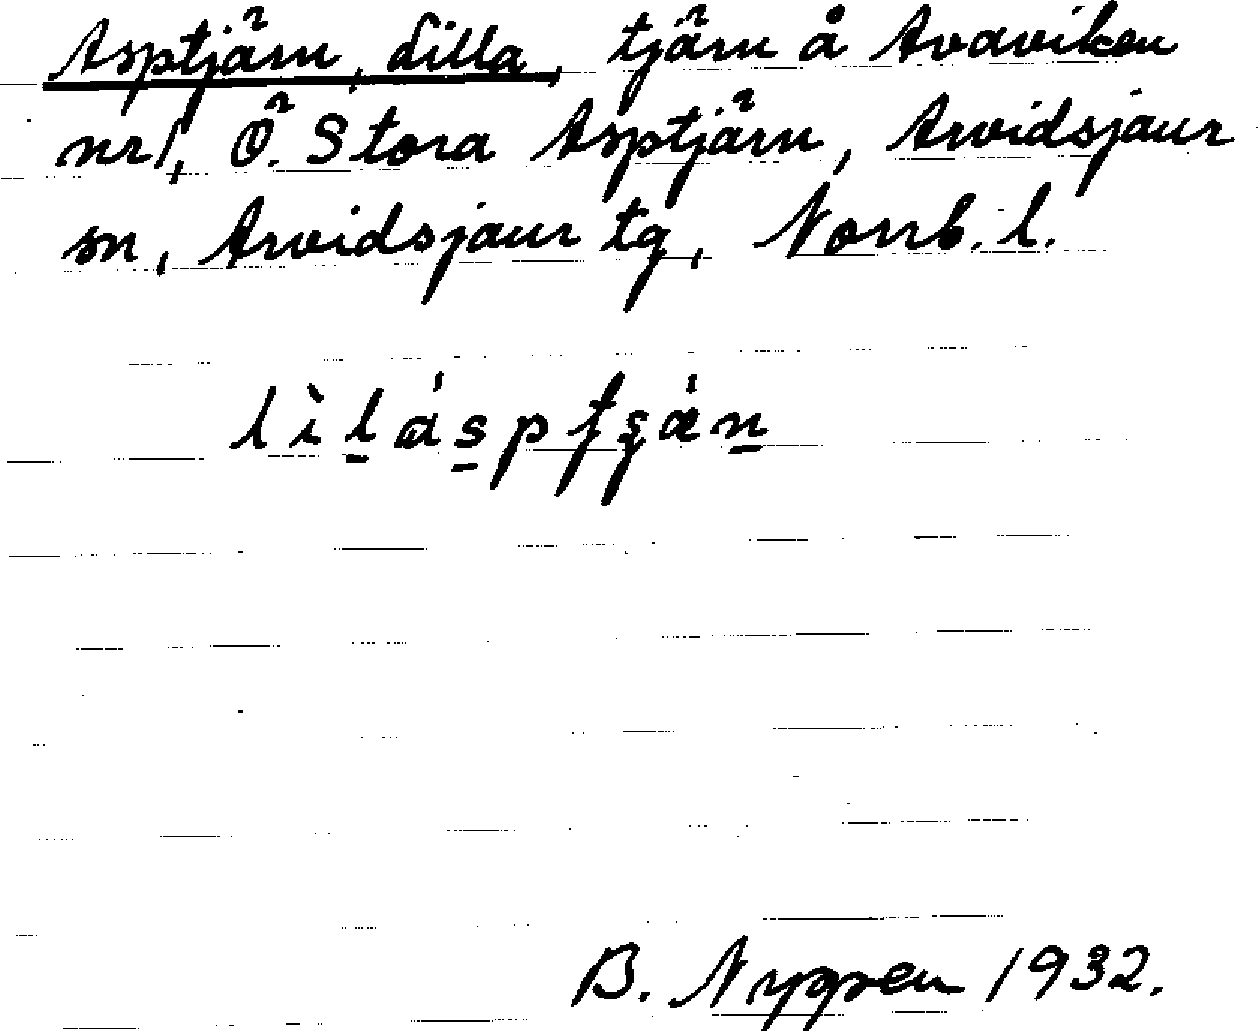 Asptjärn, Lilla, tjärn å Avaviken
nr 1, Ö. Stora Asptjärn, Arvidsjaur
sn, Arvidsjaur tg, Norrb. l.
B. Nygren 1932.